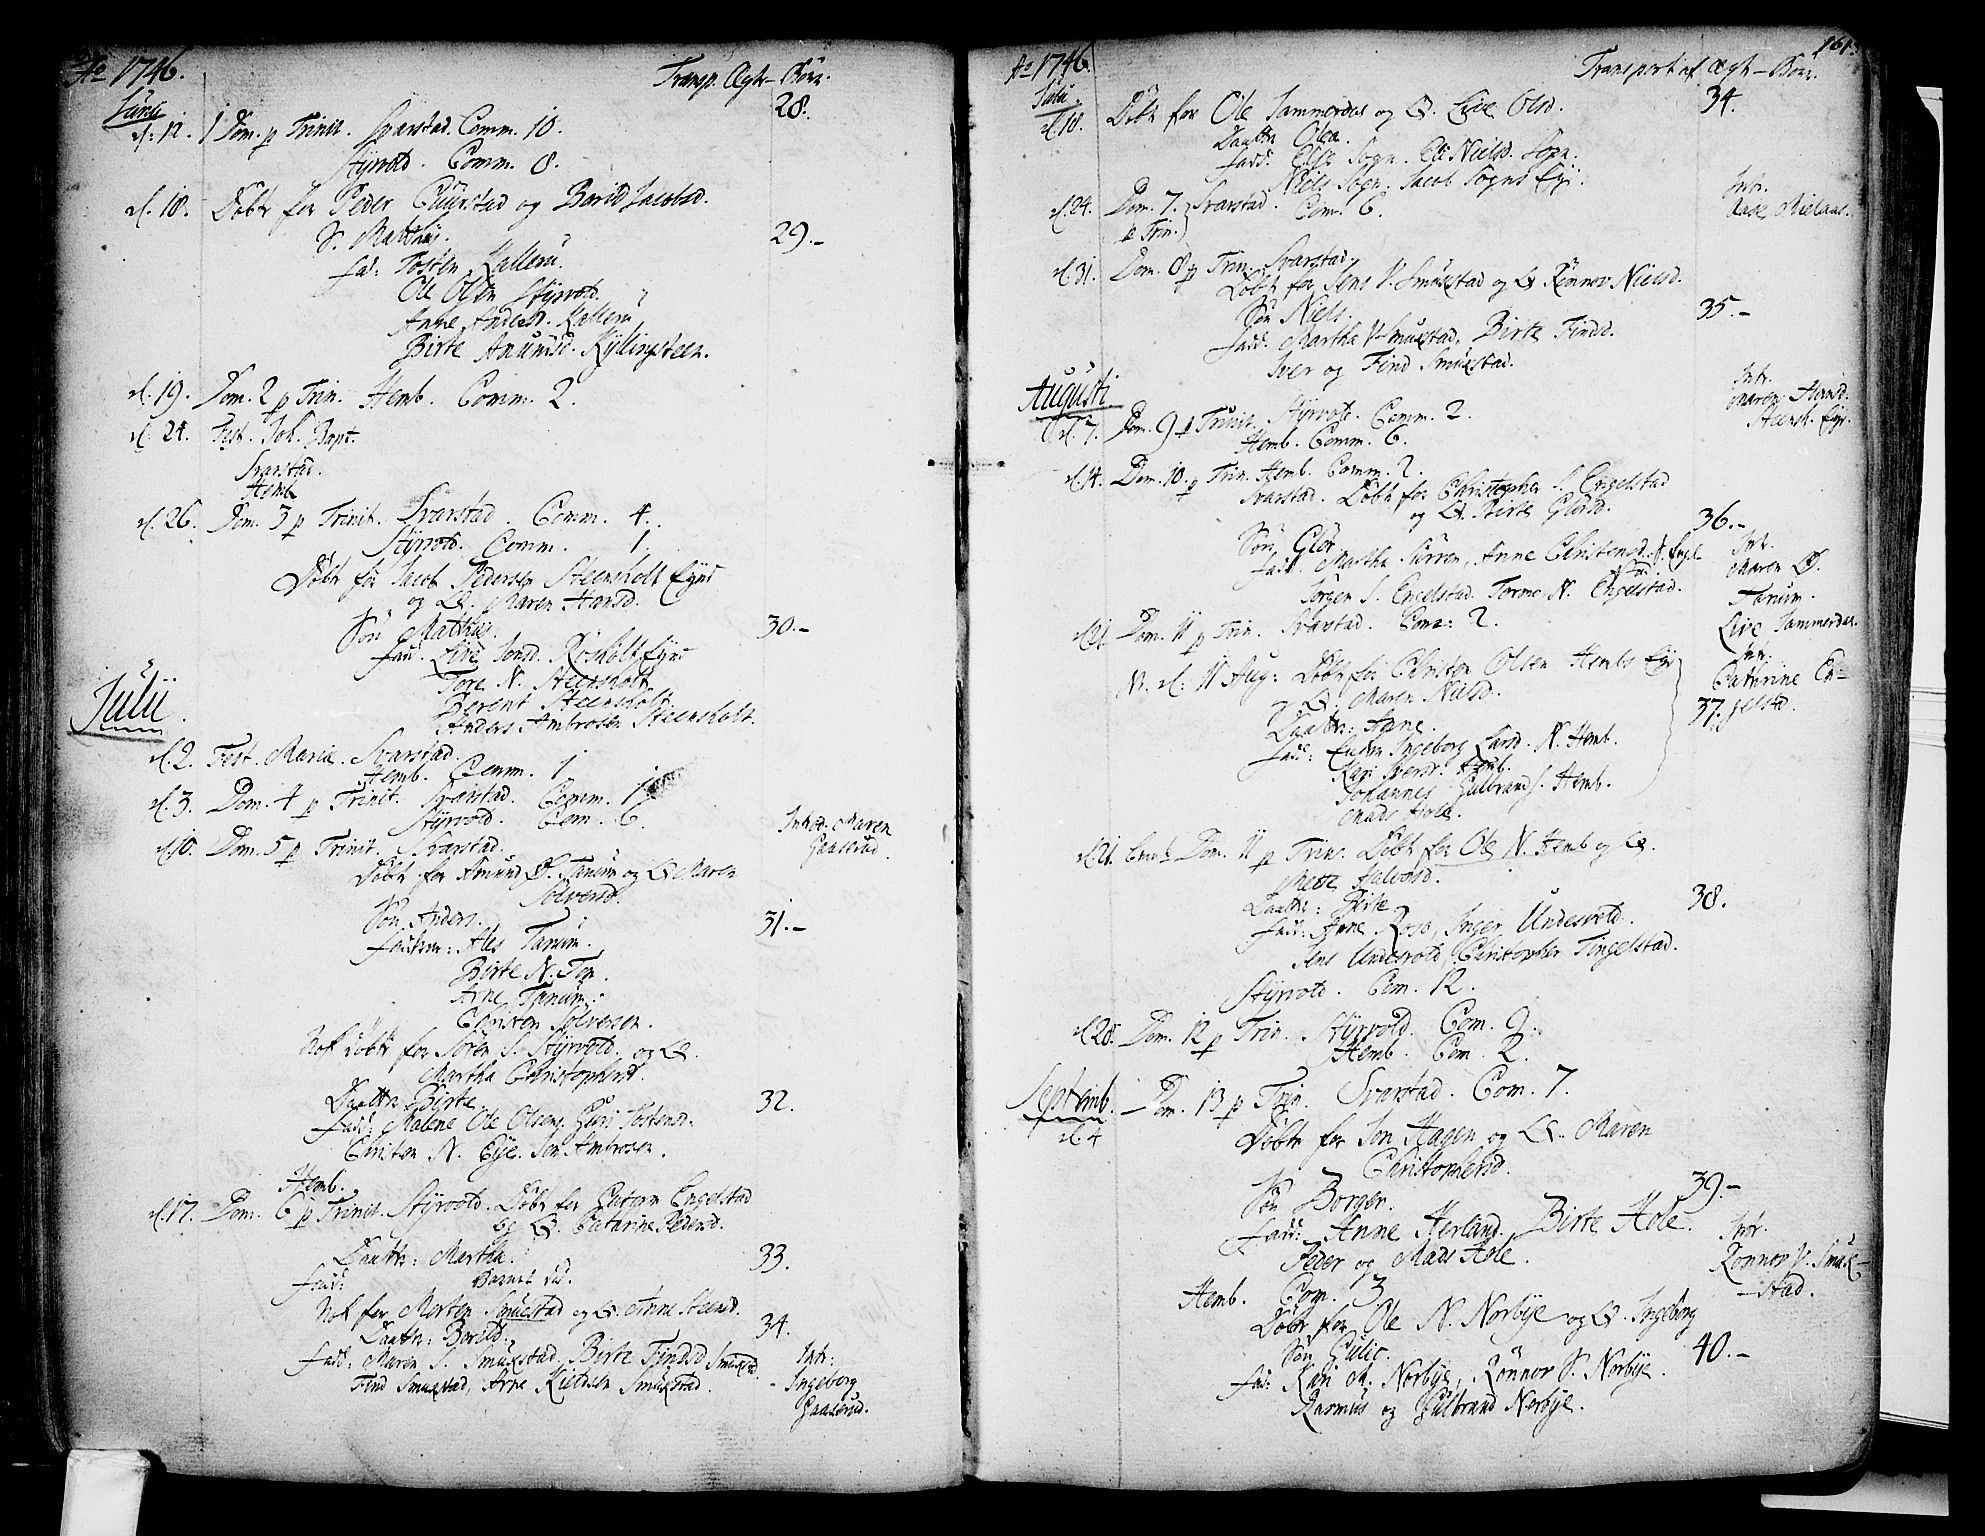 Ao 1746. Transp. Ægte-Børn
Junii 28.
d: 12. 1 Dom. p Trinit. Svarstad. Comm. 10.
Styrvold. Comm. 8.
d. 18. Döbt for Peder Guurstad og Borild Jacobsd.
S. Matthis. 29.-
fad: Tosten Kalleru
Ole Olsen Styrvold.
Anne Andersd. Kalleru
Birte Amunsd. Kyllingsteen.
d. 19. Dom. 2 p Trin. Hemb. Comm. 2.
d. 24. Fest. Joh. Bapt.
Svarstad.
Hemb
d. 26. Dom. 3 p Trinit. Svarstad. Comm. 4.
Styrvold. Comm. 1.
Döbt for Jacob Pedersen Steensholt Eyer
og Q. Maren Hansd.
Sön Matthis. 30.-
fad. Live Jonsd. Rosholt Eyer
Tore N. Steensholt
Berent Steensholt.
Anders Ambrosen Steensholt.
Julii.
d. 2. Fest. Mariæ. Svarstad.
Hemb. Comm. 1
d. 3. Dom. 4 p Trinit. Svarstad. Comm. 1
Styrvold. Com. 6.
d. 10. Dom. 5 p Trinit. Svarstad. Introd. Maren Gaaserud.
Döbt for Amund Ø. Tanum og Q Maren
Solversd.
Sön Anders. 31.-
Faddere: Ales Tanum.
Birte N. Ton.
Arne Tanum:
Christen Solversen.
Nok döbt for Sören S. Styrvold. og Q.
Martha Christophersd.
Daatter Birte 32.
Fadd: Malene Ole Olsens, Guri Tostensd.
Christen N. Eye. Jon Ambrosen.
Hemb.
d. 17. Dom. 6 p Trinit. Styrvold. Döbt for Guttorm Engelstad
og Q. Catarine Pedersd.
Daatter: Martha. 33.
fadd: Barnet död.
Nok for Morten Smuestad og Q. Anne Steensd.
Daatter: Borild. 34.
fadd: Maren S. Smukstad, Birte Findsd Smukstad. Intr:
Find Smukstad, Arne Kieldsen Smukstad. - Ingeborg
Gaaserud.
Ao 1746. Transport af Ægte-Børn. 161.
Julii. 34.
d. 10. Döbt for Ole Sammerdas og Q. Live Olsd.
Daatter Olea.
fadd: Else Sogn. Eli Nielsd. Sogn.
Niels Sogn. Jacob Sogns Eyi.
d. 24. Dom. 7. p Trin. Svarstad. Com. 6. Intr. Aase Mielaas.
d. 31. Dom. 8 p Trin: Svarstad.
Döbt for Jens V. Smukstad og Q Rönnov Nielsd.
Sön Niels. 35.-
Fadd. Martha V. Smukstad, Birte Findsd.
Iver og Find Smukstad.
Augusti Intr. Maren Hansd. Steensh. Eyi.
d. 7. Dom. 9 p Trinit. Styrvold. Comm. 2.
Hemb. Comm. 6.
d. 14. Dom. 10. p Trin. Hemb. Comm. 2.
Svarstad. Döbt for Christopher S. Engelstad
og Q. Birte Glörsd. 36.-
Sön Glör Intr. Maren Ø. Tanum.
fadd. Martha Sörren, Anne Christensd.
Jörgen S. Engelstad. Tormo N. Engelstad.
d. 21. Dom. 11 p Trin. Svarstad. Com: 2. Live Sammerdas.
N. d: 11 Aug: Döbt for Christen Olsen Hembs Eyi Intr. Catarine Engelstad.
og Q. Maren Nielsd. 37.
Daatter: Anne.
Fadd: Ingeborg Larsd. N. Hemb.
Kari Iversd: Hemb.
Johannes Gulbrands. Hemb.
Mads Hole.
d. 21. Dom. 11 p Trin. Döbt for Ole N. Hemb og Q.
Mette Halvorsd.
Daatter: Birte 38.
fadd: Anne Roso, Inger Undesvold.
Jens Undesvold, Christopher Tingelstad.
Styrvold. Com. 12.
d. 28. Dom. 12 p Trin. Styrvold. Com. 9.
Hemb. Com. 2.
Septemb. Dom. 13 p Trin. Svarstad. Com. 7.
d. 4 Döbt for Jon Hagen og Q. Maren
Christophersd.
Sön Borger. 39.-
fadd: Anne Herland, Birte Hole. Intr.
Peder og Mads Hole. Rönnov V. Smuk-
stad.
Hemb. Com. 3
Döbt for Ole N. Norbye og Q. Ingeborg
Sön Gulic. 40.-
fad: Kari M. Norbye, Rönnov S. Norbye.
Rasmus og Gulbrand Norbye.